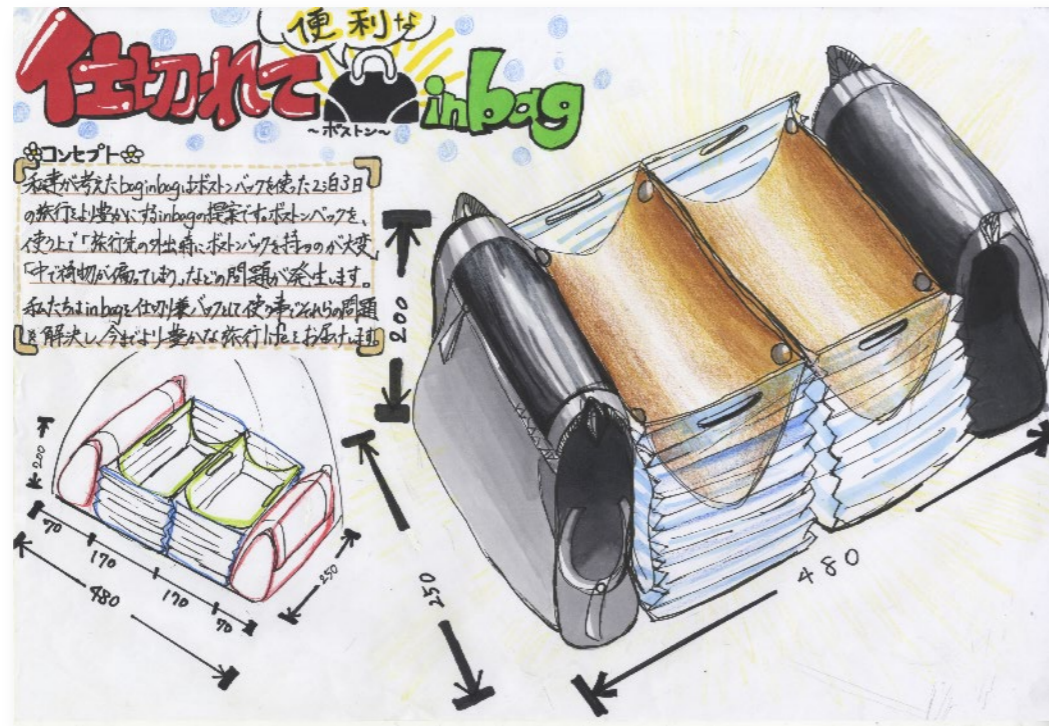 便利な
仕切れて
inbag
～ボストン～
コンセプト
私達が考えたbaginbagはボストンバックを使った2泊3日
の旅行をより豊かにするinbagの提案です。ボストンバックを、
使う上で「旅行先の外出時にボストンバックを持つのが大変」
「中で荷物が傷ってしまう」などの問題が発生します。
私たちはinbagを仕切り兼バックとして使う事でそれらの問題
を解決し、今までより豊かな旅行をお届けします。
200
250
480
200
70
170
170
70
480
250